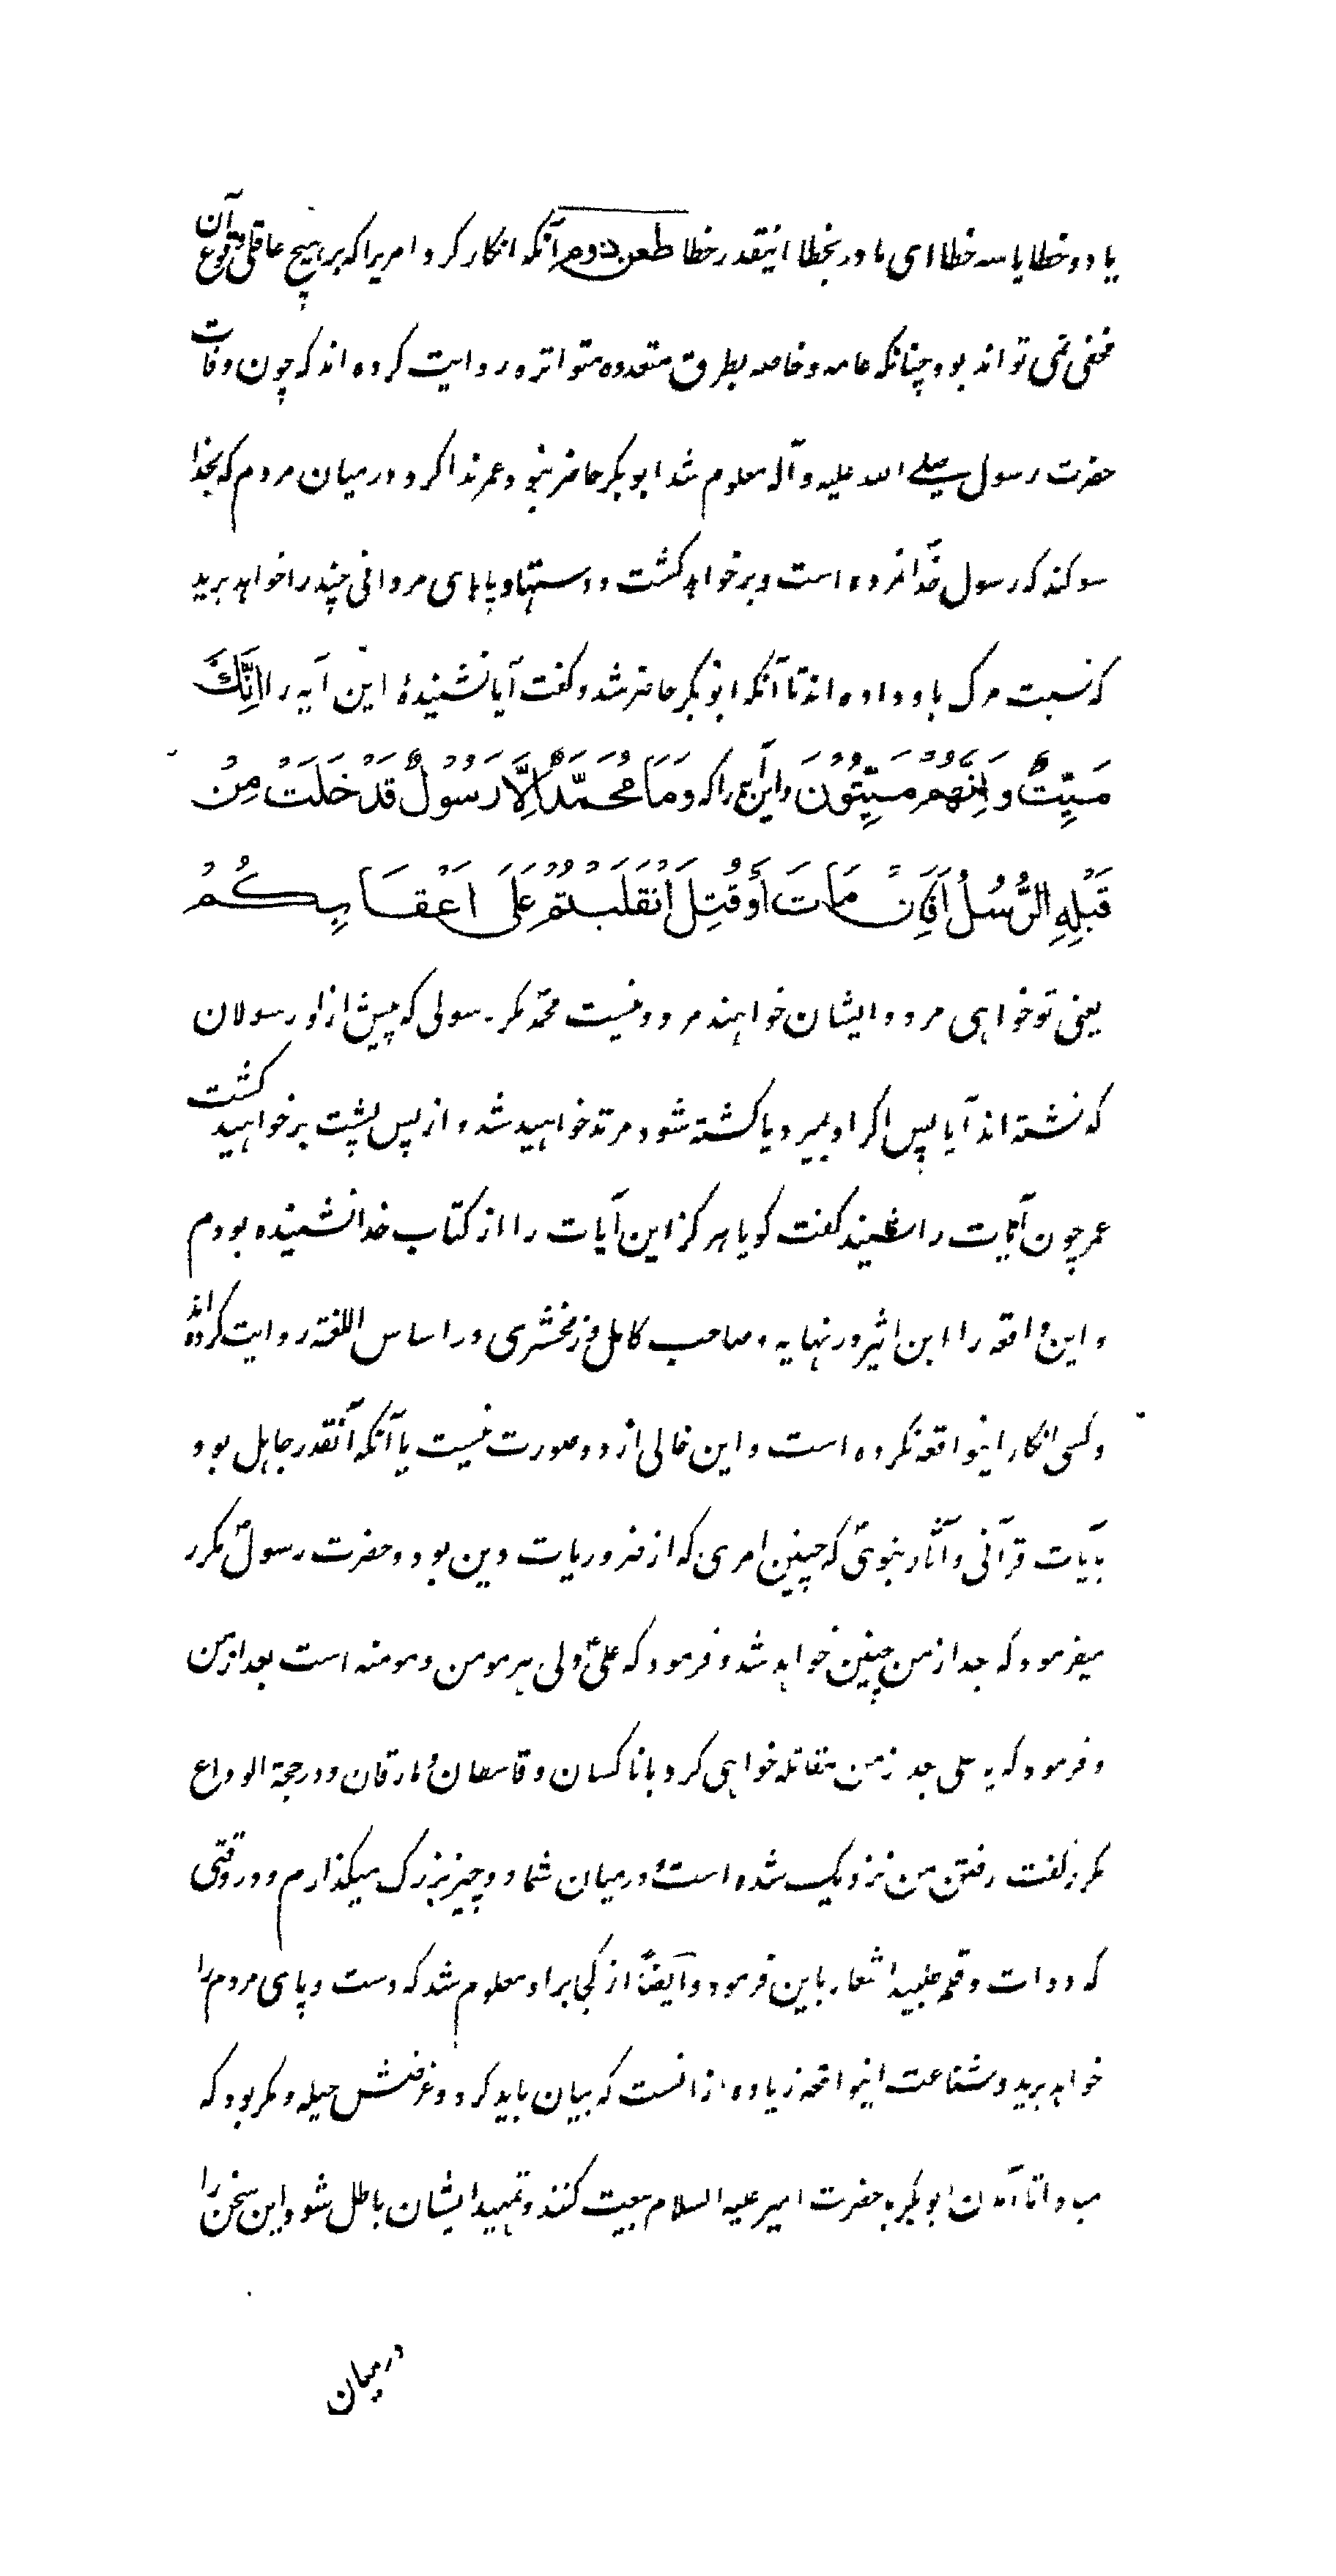 یا دو خطا یا سه خطا ای مادر بخطا اینقدر خطا طعن دوم آنکه انکار کرد امریرا که بر هیچ عاقلی وقوع آن
مخفی نمی تواند بود چنانکه عامه و خاصه بطرق متعدده متواتره روایت کرده اند که چون وفات
حضرت رسول صلے الله علیه و آله معلوم شد ابوبکر حاضر نبود عمر ندا کرد در میان مردم که بخدا
سوکند که رسول خدا نمرده است و بر خواهد کشت و دستها و پاهای مردانی چند را خواهد برید
که نسبت مرک باو داده اند تا آنکه ابوبکر حاضر شد و کفت آیا نشنیدۀ این آیه را اِنَّكَ
مَیِّتٌ وَ اِنَّهُمْ مَیِّتُوُنَ و این آیه را که وَ مَا مُحَمَّدٌ اِلَّا رَسُوُلٌ قَدْ خَلَتْ مِنْ
قَبْلِهِ الرُّسُلُ اَفَاِنْ مَاتَ اَوْ قُتِلَ انْقَلَبْتُمْ عَلَی اَعْقَابِکُمْ
یعنی تو خواهی مرد و ایشان خواهند مرد و نیست محمدؐ مکر رسولی که پیش از او رسولان
کذشته اند آیا پس اکر او بمیرد یا کشته شود مرتد خواهید شد و از پس پشت بر خواهید کشت
عمر چون آیات را شنید کفت کویا هرکز این آیات را از کتاب خدا نشنیده بودم
و این واقعه را ابن اثیر در نهایه و صاحب کامل و زمخشری در اساس اللغة روایت کرده اند
و کسی انکار اینواقعه نکرده است و این خالی از دو صورت نیست یا آنکه آنقدر جاهل بود
بآیات قرآنی و آثار نبویؐ که چنین امری که از ضروریات دین بود و حضرت رسولؐ مکرر
میفرمود که بعد از من چنین خواهد شد و فرمود که علیؑ ولی هر مومن و مومنه است بعد از من
و فرمود که یا علی بعد از من مقاتله خواهی کرد با ناکسان و قاسطان و مارقان و در حجة الوداع
مکرر کفت رفتن من نزدیک شده است و در میان شما دو چیز بزرک میکذارم و در وقتی
که دوات و قلم طلبید اشعار باین فرمود و ایضاً از کجا بر او معلوم شد که دست و پای مردم را
خواهد برید و شناعت اینواقعه زیاده از انست که بیان باید کرد و غرضش حیله و مکر بود که
مبادا تا آمدن ابوبکر به حضرت امیر علیه السلام بیعت کنند و تمهید ایشان باطل شود این سخن را
در میان